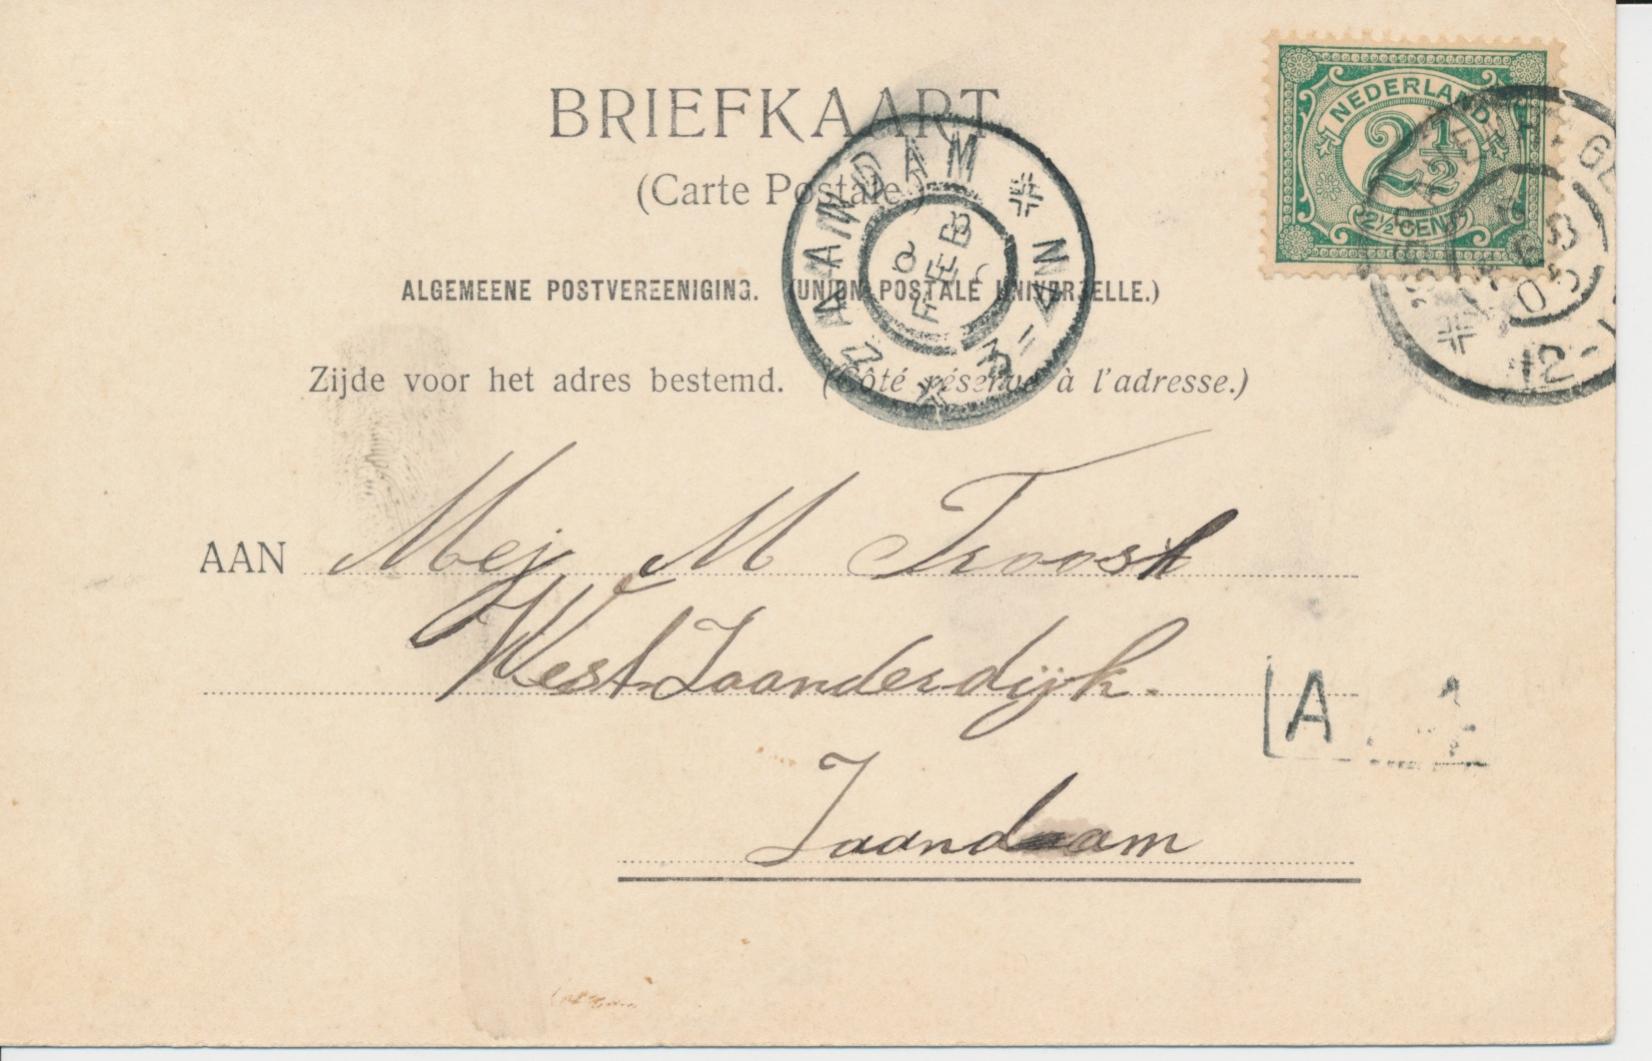 BRIEFKAART
(Carte Postale.)
ALGEMEENE POSTVEREENIGING. (UNION POSTALE UNIVERSELLE.)
Zijde voor het adres bestemd. (Côté réservé à l'adresse.)
NEDERLAND
2½
2½ CENT
ZAANDAM
FEB
3-4N
12-1
AAN Mej M Troost
West-Zaanderdijk.
Zaandam
A